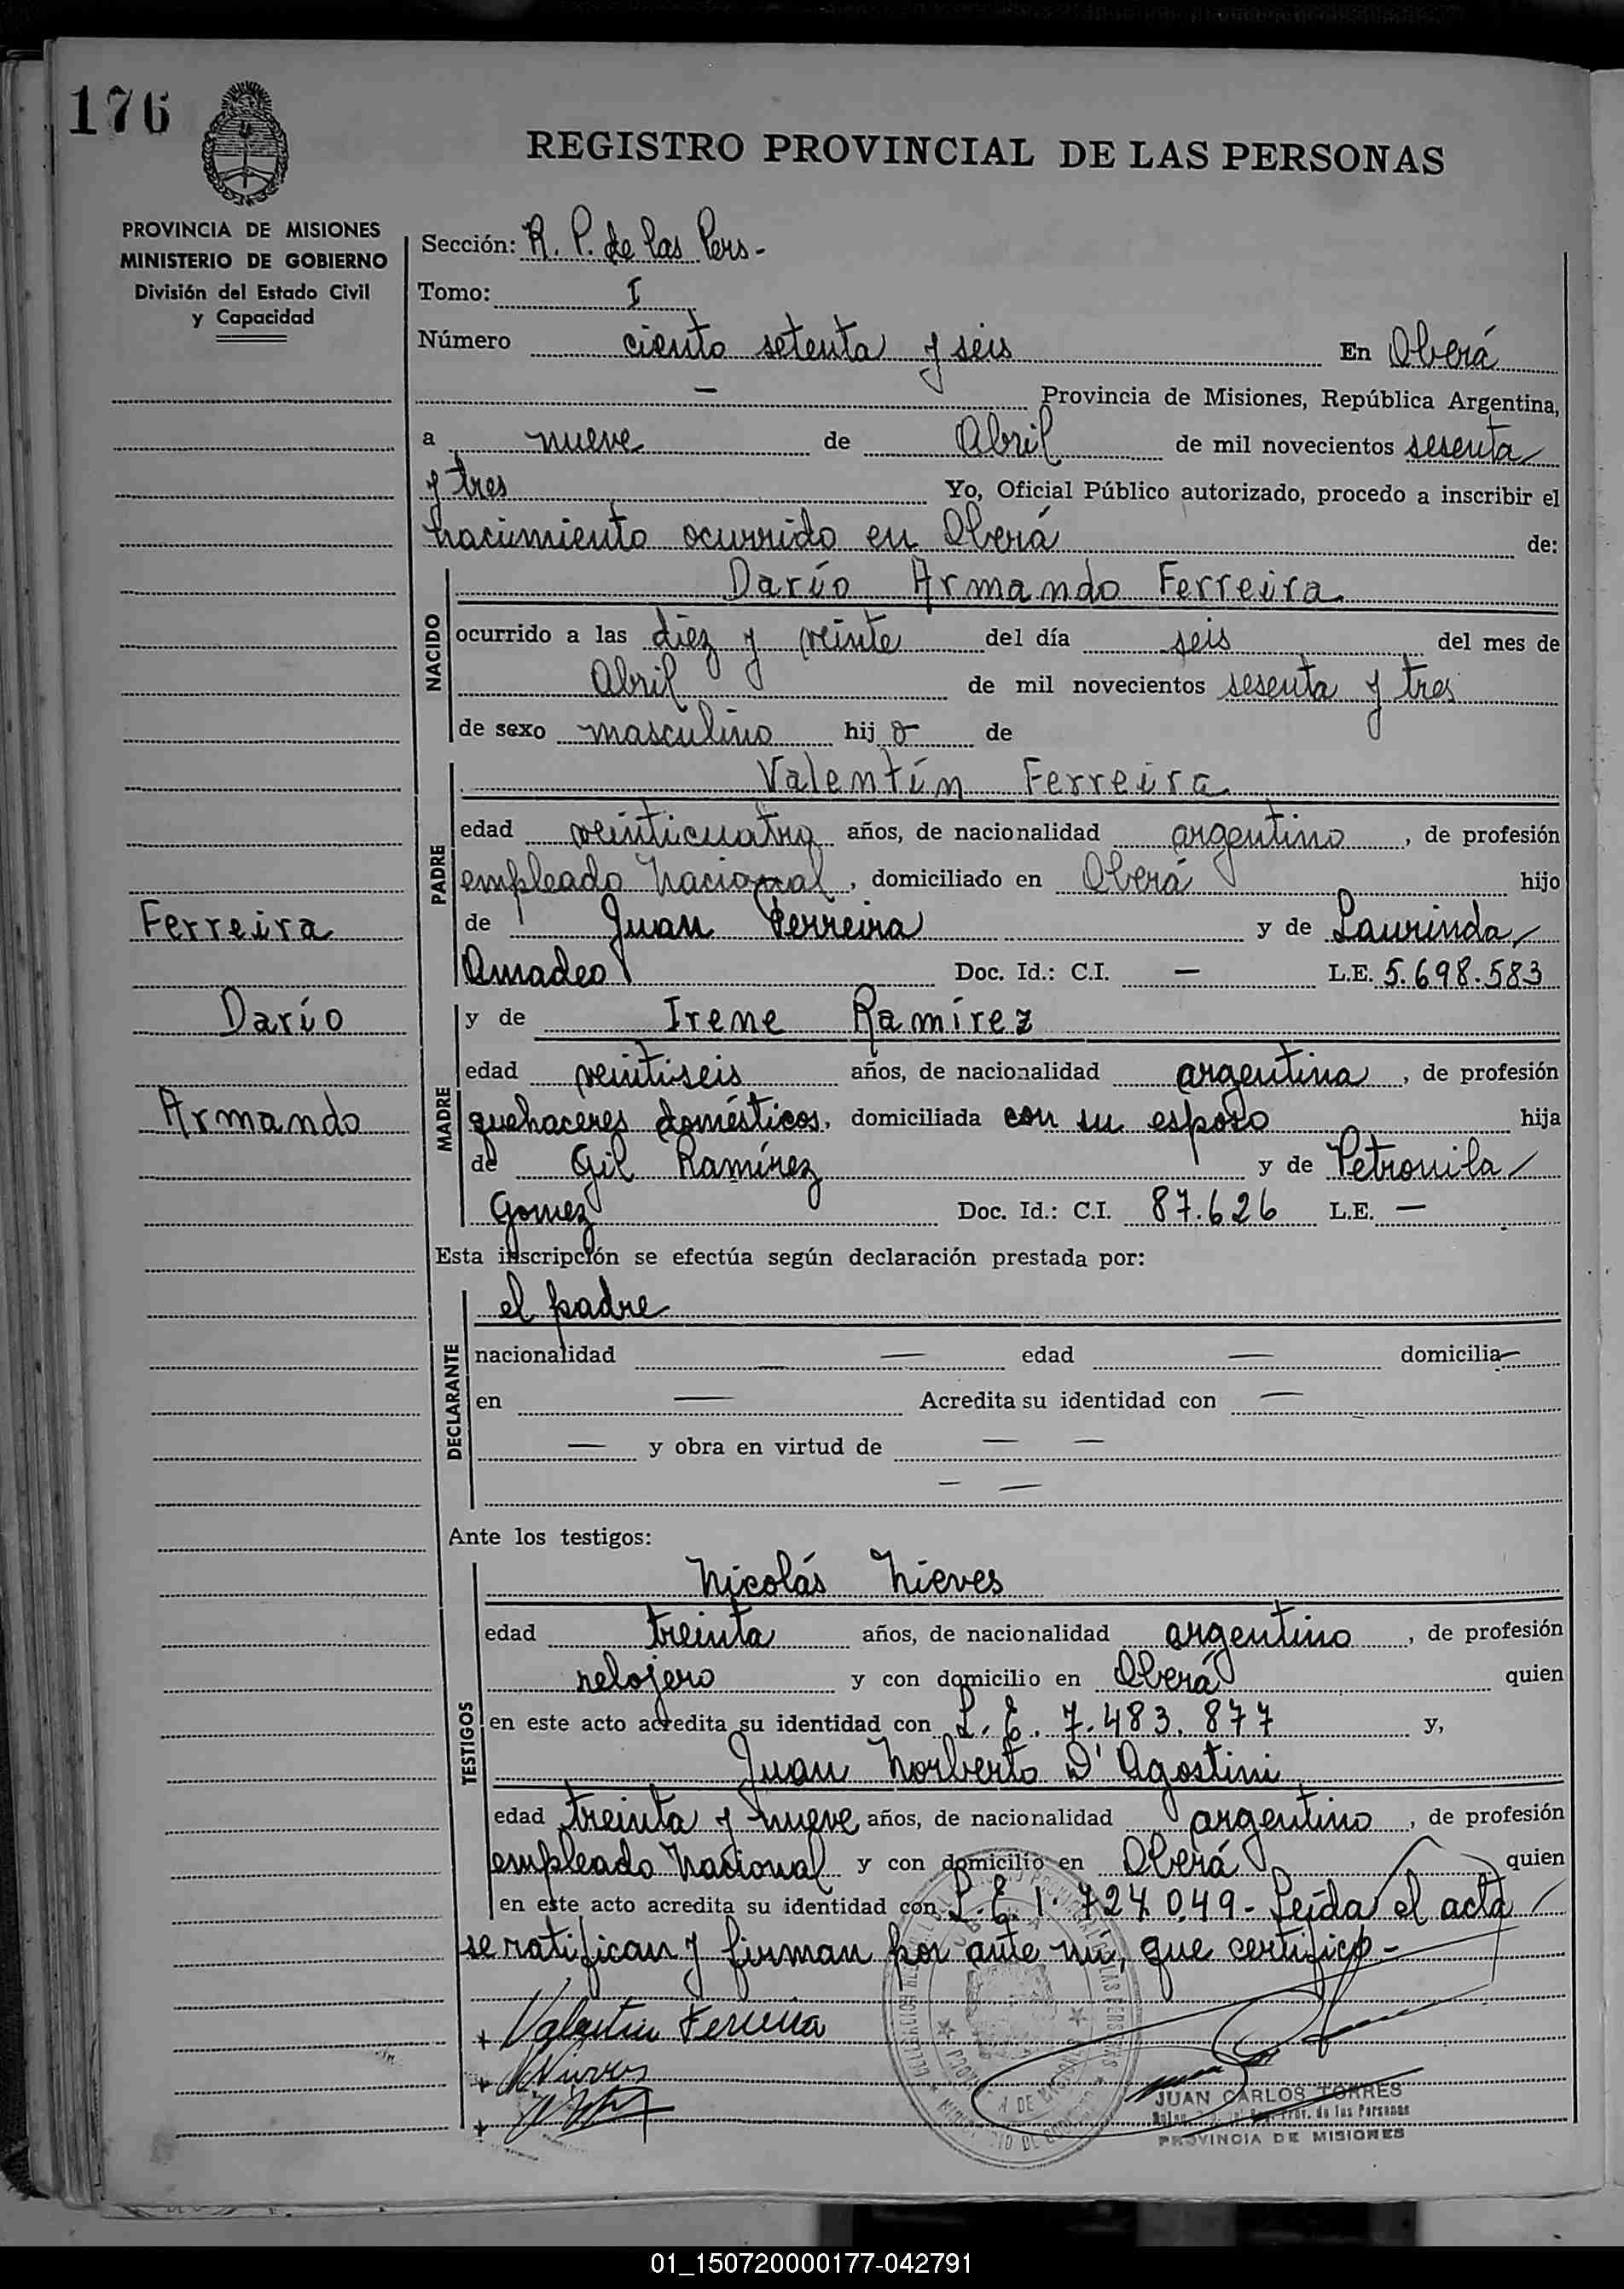 176
REGISTRO PROVINCIAL DE LAS PERSONAS
PROVINCIA DE MISIONES
MINISTERIO DE GOBIERNO
División del Estado Civil
y Capacidad
Sección: R. P. de las Pers-
Tomo: I
Número ciento setenta y seis En Oberá
— Provincia de Misiones, República Argentina,
a nueve de Abril de mil novecientos sesenta
y tres Yo, Oficial Público autorizado, procedo a inscribir el
nacimiento ocurrido en Oberá de:
NACIDO
Darío Armando Ferreira
ocurrido a las diez y veinte del día seis del mes de
Abril de mil novecientos sesenta y tres
de sexo masculino hij o de
PADRE
Valentín Ferreira
edad veinticuatro años, de nacionalidad argentino, de profesión
empleado Nacional, domiciliado en Oberá hijo
de Juan Ferreira y de Laurinda
Amadeo Doc. Id.: C.I. — L.E. 5.698.583
Ferreira
Darío
Armando
MADRE
y de Irene Ramírez
edad veintiseis años, de nacionalidad argentina, de profesión
quehaceres domésticos, domiciliada con su esposo hija
de Gil Ramírez y de Petronila
Gomez Doc. Id.: C.I. 87.626 L.E. —
Esta inscripción se efectúa según declaración prestada por:
DECLARANTE
el padre
nacionalidad — edad — domicilia—
en — Acredita su identidad con —
— y obra en virtud de — —
— —
Ante los testigos:
TESTIGOS
Nicolás Nieves
edad treinta años, de nacionalidad argentino, de profesión
relojero y con domicilio en Oberá quien
en este acto acredita su identidad con L. E. 7.483.877 y,
Juan Norberto D'Agostini
edad treinta y nueve años, de nacionalidad argentino, de profesión
empleado Nacional y con domicilio en Oberá quien
en este acto acredita su identidad con L. E. 1.727.049- Leída el acta
se ratifican y firman por ante mí, que certifico-
+ Valentin Ferreira
+ Nieves
+
JUAN CARLOS TORRES
Prov. de las Personas
PROVINCIA DE MISIONES
01_150720000177-042791